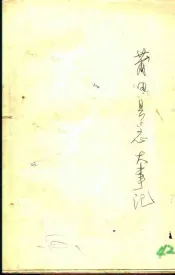 莆田县志大事记
42